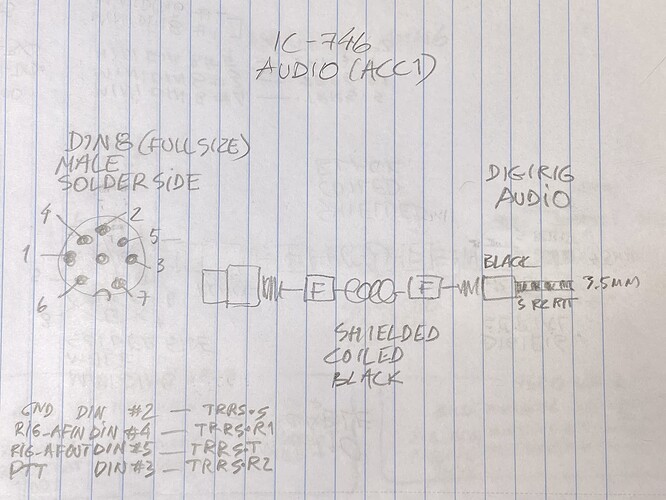 IC-746
AUDIO (ACC1)
DIN8 (FULLSIZE)
MALE
SOLDER SIDE
DIGIRIG
AUDIO
4
2
5
1
3
6
7
BLACK
F
F
3.5MM
S R2 R1 T
SHIELDED
COILED
BLACK
GND DIN #2 — TRRS-S
RIG_AFIN DIN #4 — TRRS-R1
RIG_AFOUT DIN #5 — TRRS-T
PTT DIN #3 — TRRS-R2